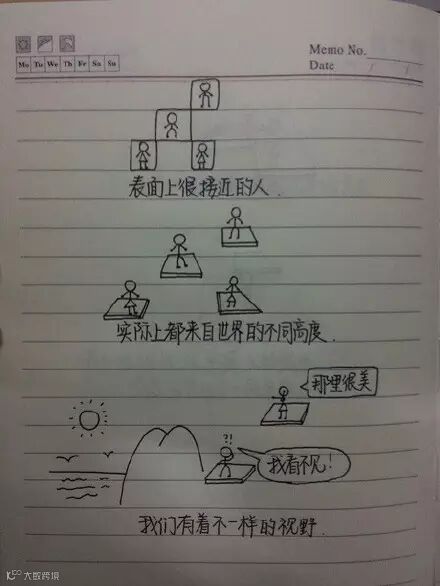 Memo No.
Mo Tu We Th Fr Sa Su
Date / /
表面上很接近的人.
实际上都来自世界的不同高度.
那里很美
?!
我看不见!
我们有着不一样的视野.
大数跨境